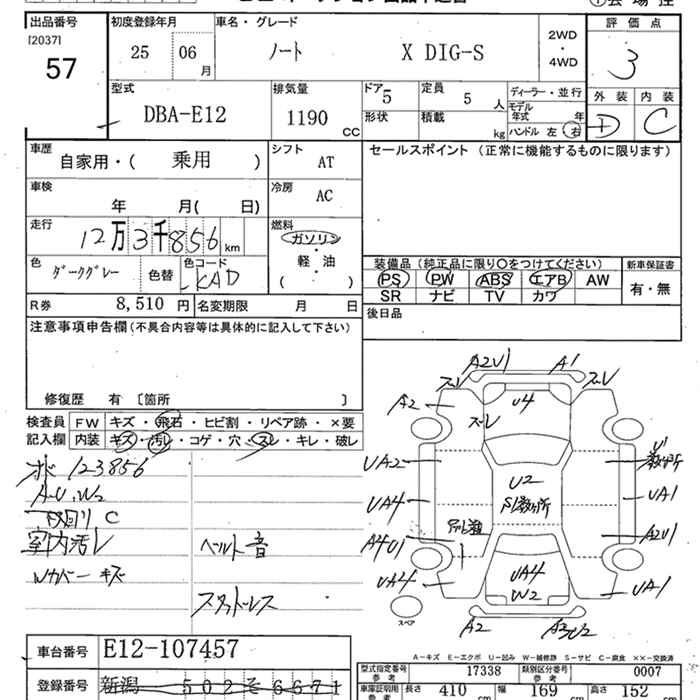 出品番号 初度登録年月 車名・グレード 評価点
[2037]
57 25 06 月 ノート X DIG-S 2WD・4WD 3
型式 排気量 ドア 定員 ディーラー・並行 外装 内装
DBA-E12 1190 CC 5 5 人 モデル年式 年 D C
形状 積載 kg ハンドル 左 右
車歴 自家用・( 乗用 ) シフト AT セールスポイント (正常に機能するものに限ります)
車検 年 月( 日) 冷房 AC
走行 12万3千856 km 燃料 ガソリン・軽・油 ( )
色 ダークグレー 色替 色コード KAD
装備品 (純正品に限り○をつけてください) 新車保証書
PS PW ABS エアB AW 有・無
SR ナビ TV カワ
R券 8,510 円 名変期限 月 日
後日品
注意事項申告欄(不具合内容等は具体的に記入して下さい)
修復歴 有 [箇所 ]
検査員記入欄 FW キズ・飛石・ヒビ割・リペア跡・×要
内装 キズ・汚レ・コゲ・穴・スレ・キレ・破レ
123856
A・U、W2
下回り C
室内汚レ ベルト音
Wカバーキズ
スタットレス
A2U1 A1
スレ スレ
A2 U4
スレ U1
UA2 U2
UA4 UA1
A4U1 A2U1
UA4 UA4 UA1
W2
スペア A2
A-キズ E-エクボ U-凹み W-補修跡 S-サビ C-腐食 ××-交換済
車台番号 E12-107457
型式指定番号 参考 17338 類別区分番号 参考 0007
登録番号 新潟 502 そ 6671
車庫証明用 参考 長さ 410 cm 幅 169 cm 高さ 152 cm